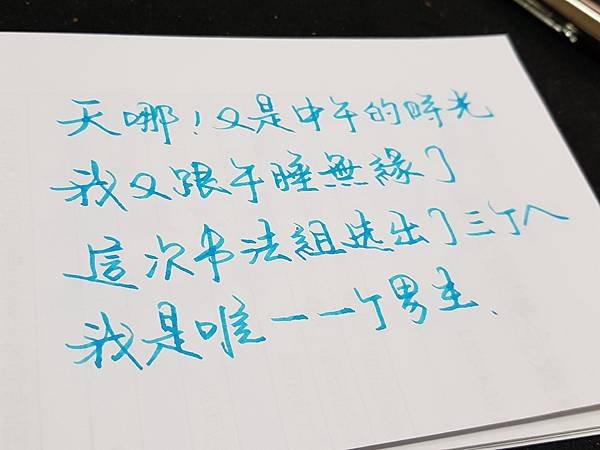 天哪!又是中午的時光
我又跟午睡無緣了
這次书法組选出了三个人
我是唯一一个男生、